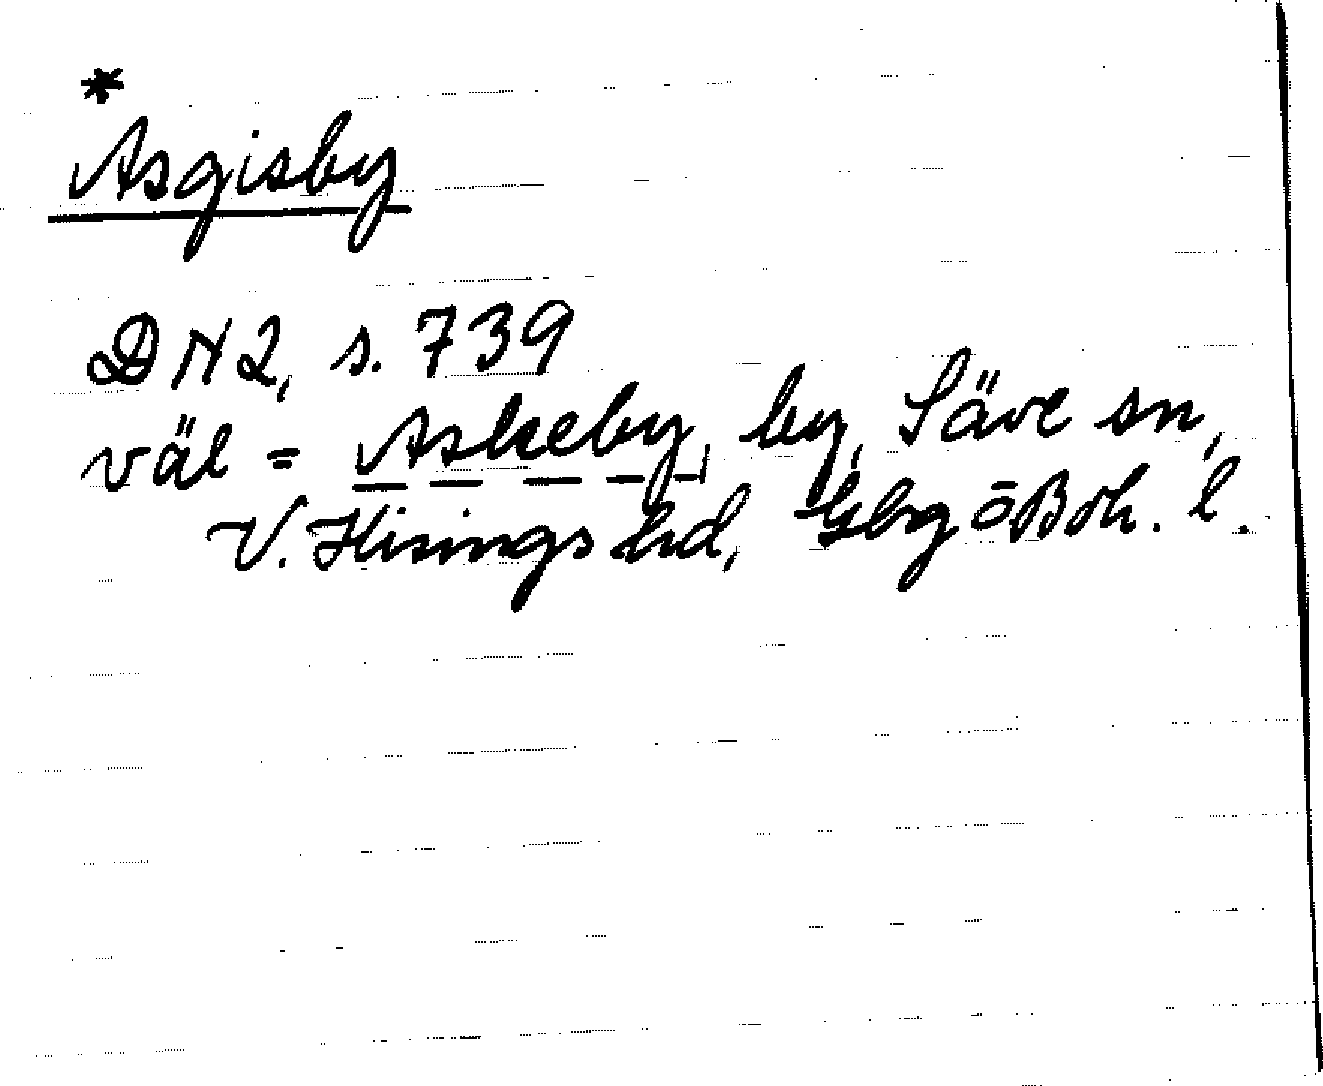 *
Asgisby
DN2, s. 739
väl = Askeby, by, Säve sn,
V. Hisings hd, Gbg ō Boh. l.